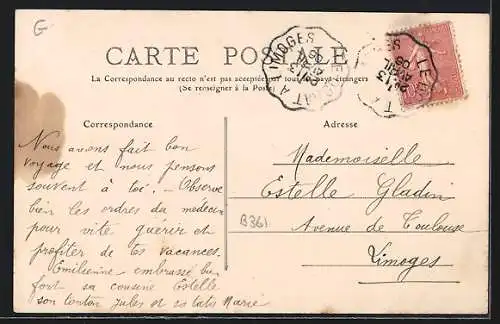 G
CARTE POSTALE
La Correspondance au recto n'est pas acceptée par tous les pays étrangers
(Se renseigner à la Poste)
LIMOGES
Correspondance
Adresse
Nous avions fait bon
voyage et nous pensons
souvent à toi. - Observe
bien les ordres du médecin
pour vite guérir et
profiter de tes vacances.
Emilienne embrasse bien
fort sa cousine Estelle
son tonton Jules et sa tata Marie
Mademoiselle
Estelle Gladin
Avenue de Toulouse
Limoges
B361